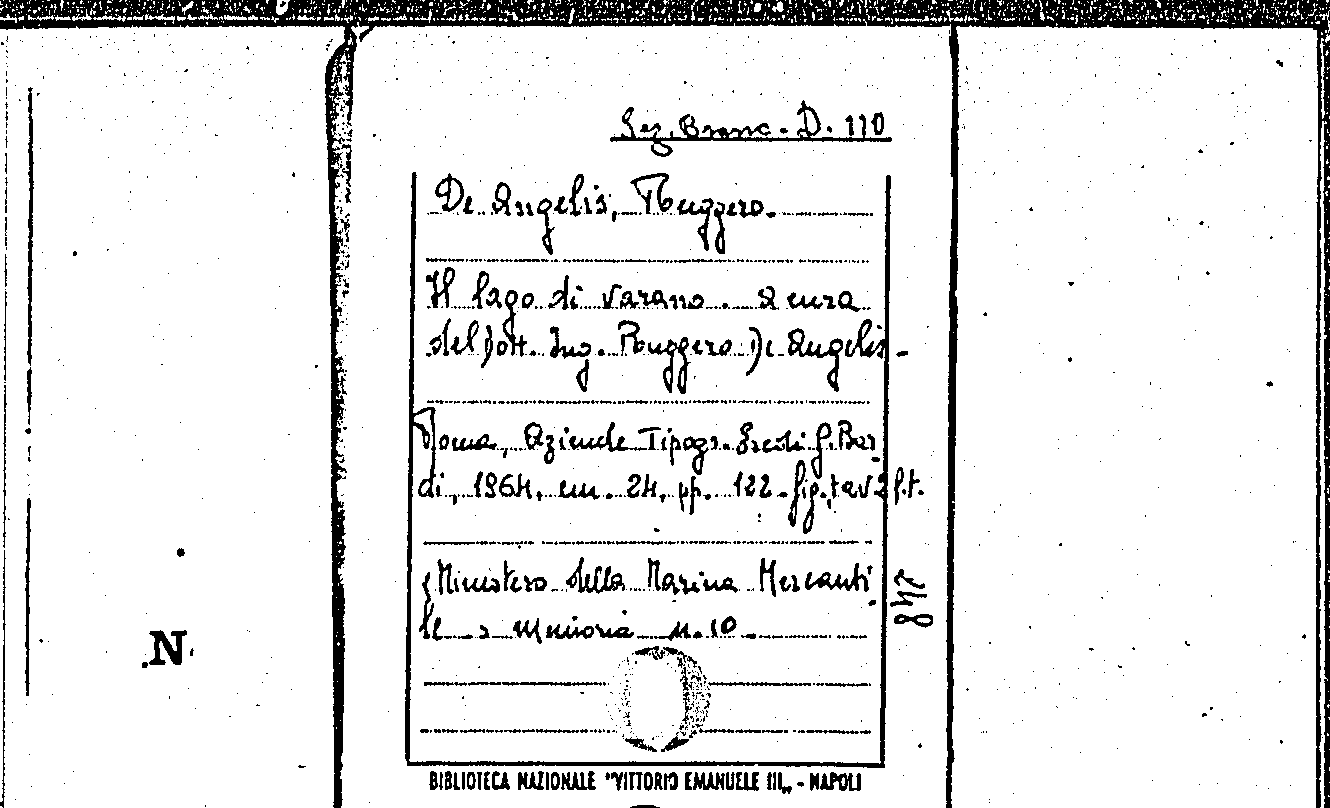 Sez. Branc. D. 110
De Angelis, Ruggero.
Il lago di Varano. A cura
del Dott. Ing. Ruggero De Angelis.
Roma, Aziende Tipogr. Eredi G. Bar
di, 1964, cm. 24, pp. 122. fig., tav 2 f.t.
(Ministero della Marina Mercanti
le - Memoria n. 10.
248
N
BIBLIOTECA NAZIONALE "VITTORIO EMANUELE III„ - NAPOLI